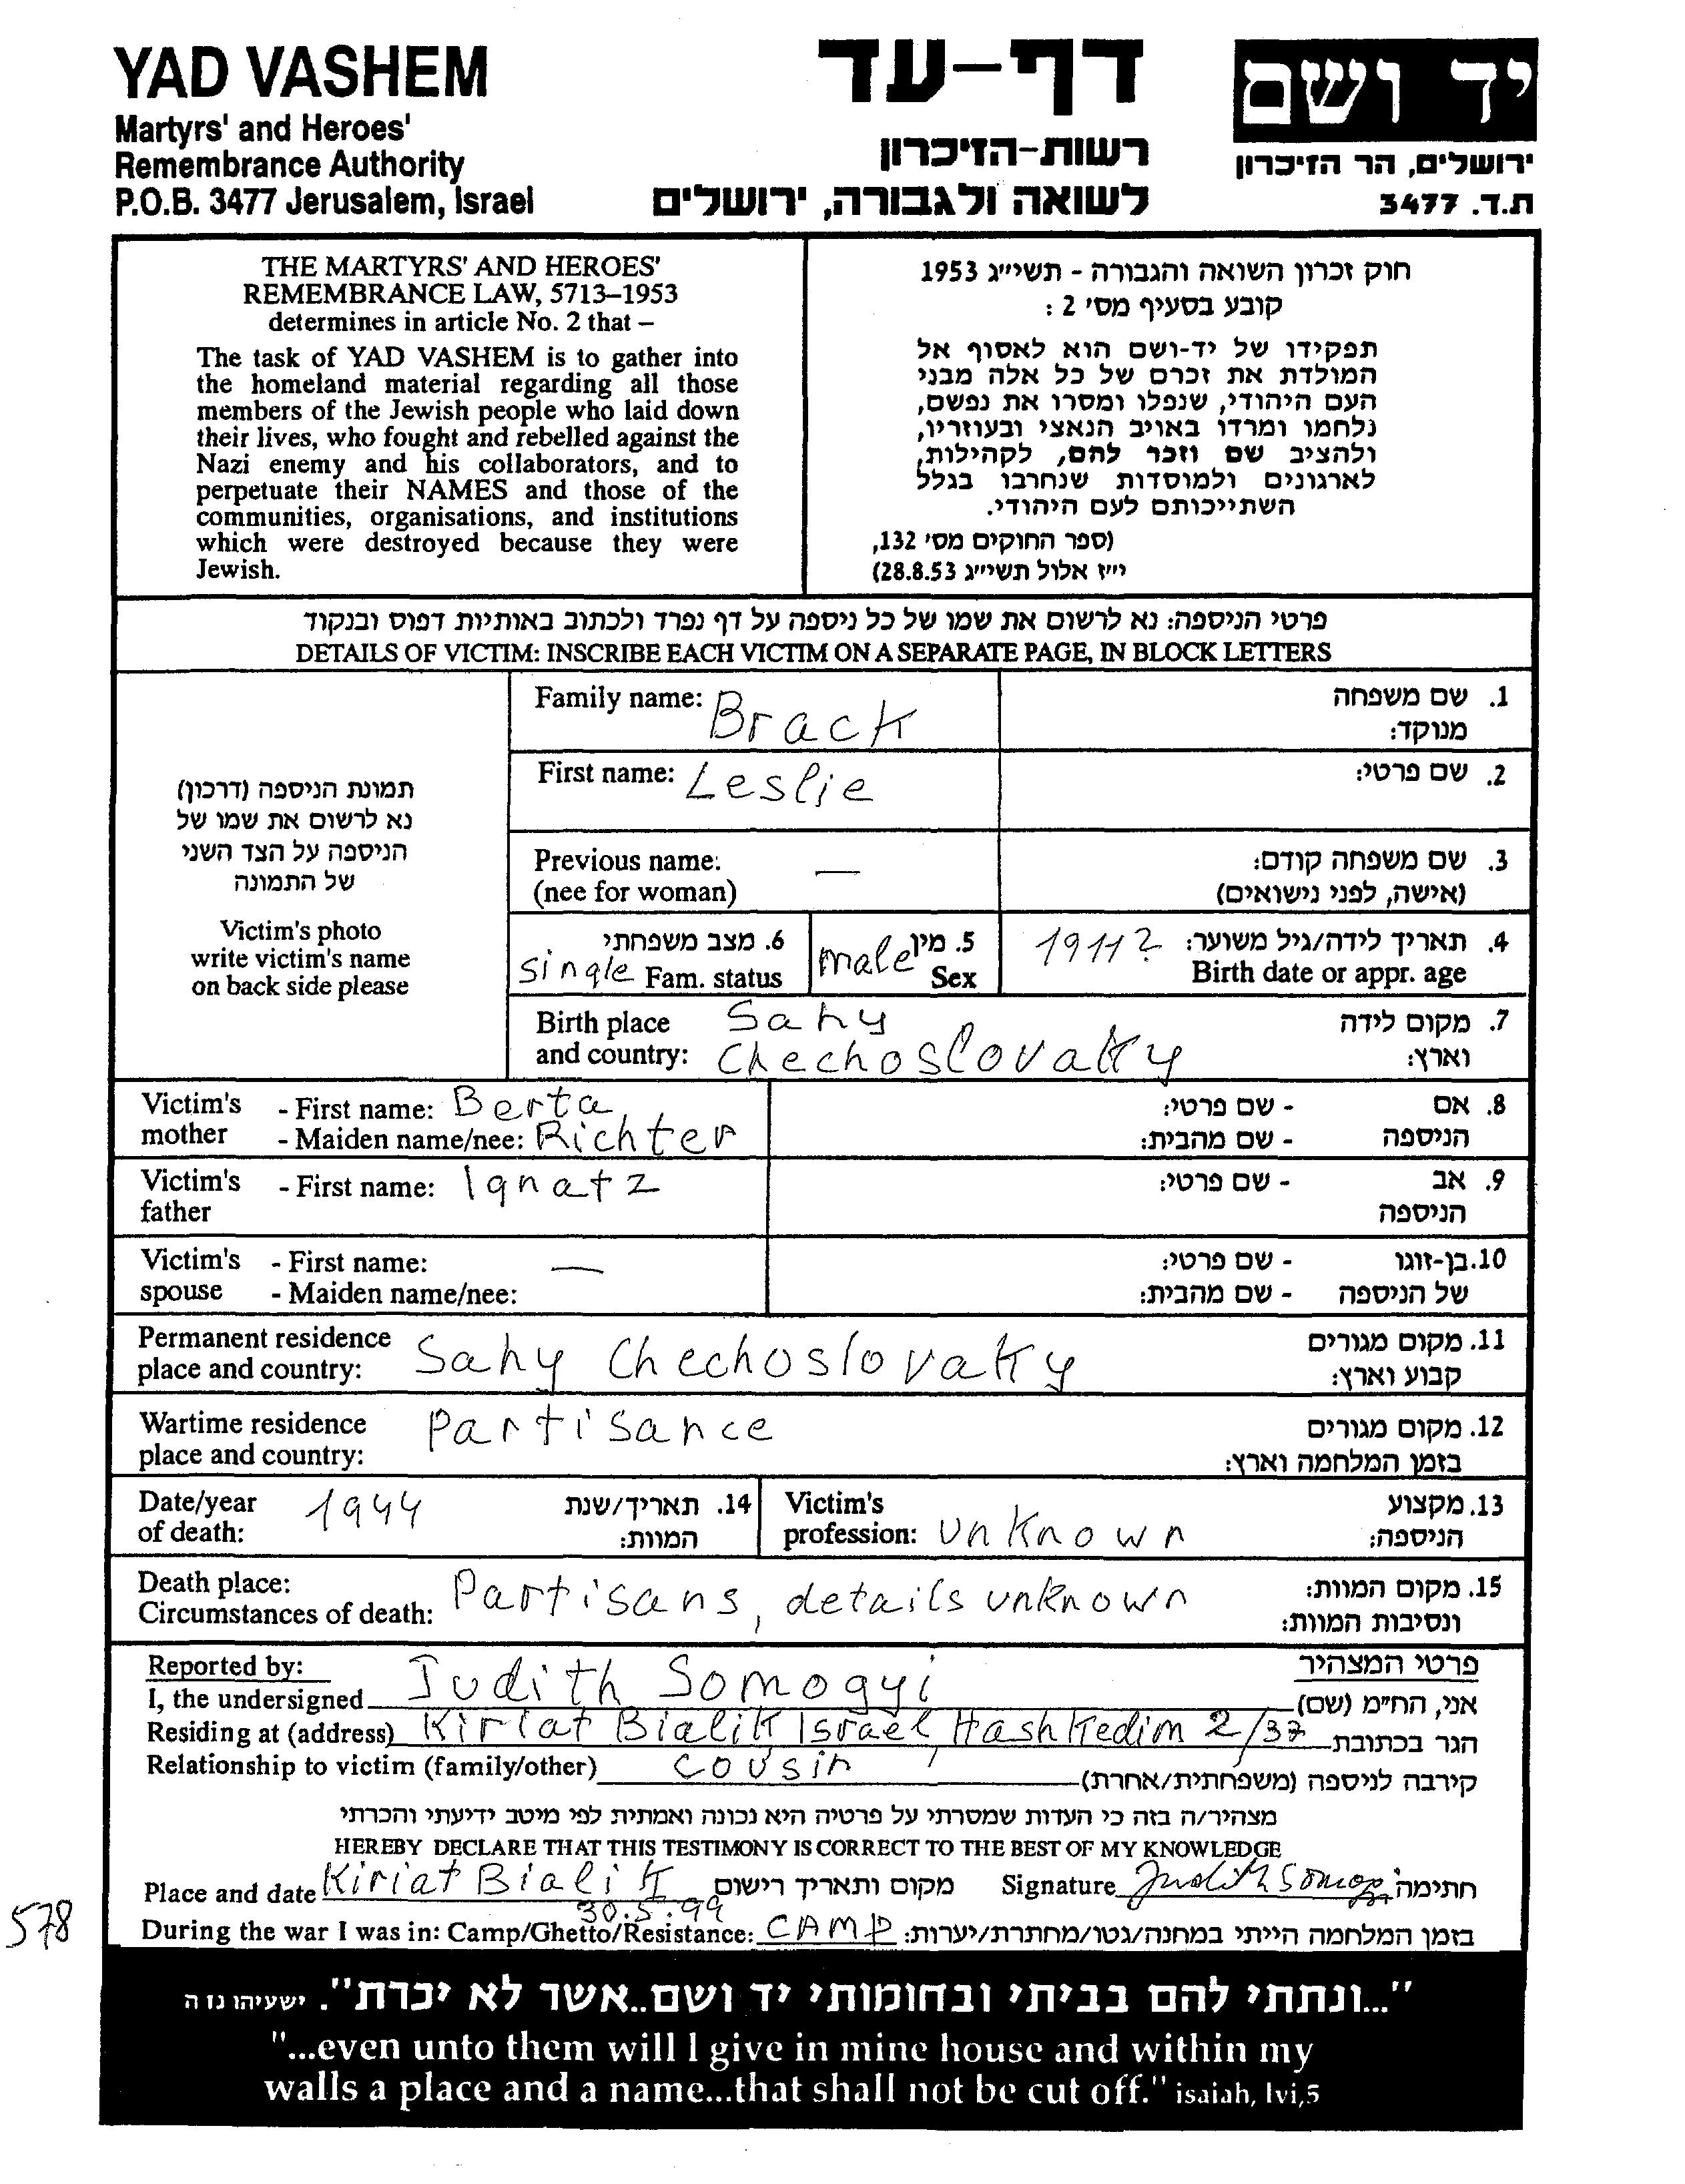 YAD VASHEM
Martyrs' and Heroes'
Remembrance Authority
P.O.B. 3477 Jerusalem, Israel
דף-עד
רשות-הזיכרון
לשואה ולגבורה, ירושלים
יד ושם
ירושלים, הר הזיכרון
ת.ד. 3477
THE MARTYRS' AND HEROES'
REMEMBRANCE LAW, 5713–1953
determines in article No. 2 that –
The task of YAD VASHEM is to gather into
the homeland material regarding all those
members of the Jewish people who laid down
their lives, who fought and rebelled against the
Nazi enemy and his collaborators, and to
perpetuate their NAMES and those of the
communities, organisations, and institutions
which were destroyed because they were
Jewish.
חוק זכרון השואה והגבורה - תשי״ג 1953
קובע בסעיף מס׳ 2 :
תפקידו של יד-ושם הוא לאסוף אל
המולדת את זכרם של כל אלה מבני
העם היהודי, שנפלו ומסרו את נפשם,
נלחמו ומרדו באויב הנאצי ובעוזריו,
ולהציב שם וזכר להם, לקהילות,
לארגונים ולמוסדות שנחרבו בגלל
השתייכותם לעם היהודי.
(ספר החוקים מס׳ 132,
י״ז אלול תשי״ג 28.8.53)
פרטי הניספה: נא לרשום את שמו של כל ניספה על דף נפרד ולכתוב באותיות דפוס ובנקוד
DETAILS OF VICTIM: INSCRIBE EACH VICTIM ON A SEPARATE PAGE, IN BLOCK LETTERS
תמונת הניספה (דרכון)
נא לרשום את שמו של
הניספה על הצד השני
של התמונה
Victim's photo
write victim's name
on back side please
Family name: Brack 1. שם משפחה
מנוקד:
First name: Leslie 2. שם פרטי:
Previous name: — 3. שם משפחה קודם:
(nee for woman) (אישה, לפני נישואים)
6. מצב משפחתי 5. מין 1911? 4. תאריך לידה/גיל משוער:
single Fam. status male Sex Birth date or appr. age
Birth place Sahy 7. מקום לידה
and country: Chechoslovaky וארץ:
Victim's - First name: Berta 8. אם - שם פרטי:
mother - Maiden name/nee: Richter הניספה - שם מהבית:
Victim's - First name: Ignatz 9. אב - שם פרטי:
father הניספה
Victim's - First name: — 10. בן-זוגו - שם פרטי:
spouse - Maiden name/nee: של הניספה - שם מהבית:
Permanent residence Sahy Chechoslovaky 11. מקום מגורים
place and country: קבוע וארץ:
Wartime residence Partisance 12. מקום מגורים
place and country: בזמן המלחמה וארץ:
Date/year 1944 14. תאריך/שנת Victim's 13. מקצוע
of death: המוות: profession: unknown הניספה:
Death place: Partisans, details unknown 15. מקום המוות:
Circumstances of death: ונסיבות המוות:
Reported by: פרטי המצהיר
I, the undersigned Judith Somogyi אני, הח״מ (שם)
Residing at (address) Kiriat Bialik Israel, Hashkedim 2/37 הגר בכתובת
Relationship to victim (family/other) cousin קירבה לניספה (משפחתית/אחרת)
מצהיר/ה בזה כי העדות שמסרתי על פרטיה היא נכונה ואמתית לפי מיטב ידיעתי והכרתי
HEREBY DECLARE THAT THIS TESTIMONY IS CORRECT TO THE BEST OF MY KNOWLEDGE
Place and date Kiriat Bialik מקום ותאריך רישום Signature Judith Somogyi חתימה
30.5.99
During the war I was in: Camp/Ghetto/Resistance: CAMP בזמן המלחמה הייתי במחנה/גטו/מחתרת/יערות:
578
"...ונתתי להם בביתי ובחומותי יד ושם..אשר לא יכרת". ישעיהו נו ה
"...even unto them will I give in mine house and within my
walls a place and a name...that shall not be cut off." isaiah, lvi,5